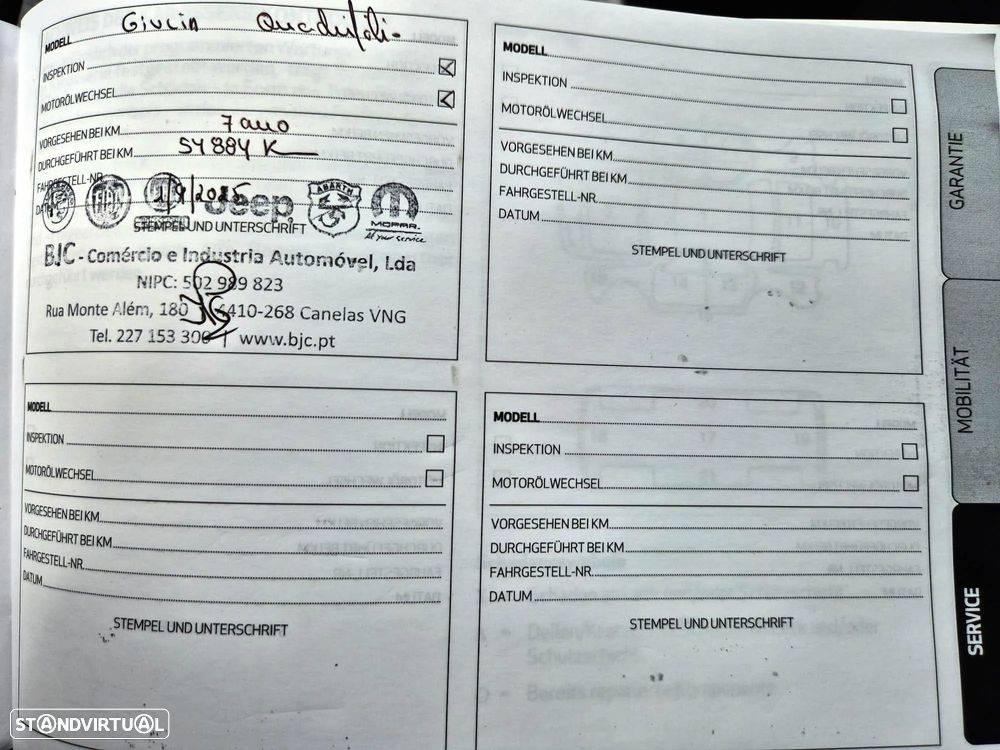 MODELL Giulia Quadrifoli-
INSPEKTION
MOTORÖLWECHSEL
VORGESEHEN BEI KM 7 ano
DURCHGEFÜHRT BEI KM 54884 K
FAHRGESTELL-NR.
DATUM 1/9/2025
Jeep ABARTH MOPAR
At your service
STEMPEL UND UNTERSCHRIFT
BJC - Comércio e Industria Automóvel, Lda
NIPC: 502 989 823
Rua Monte Além, 180 4410-268 Canelas VNG
Tel. 227 153 300 | www.bjc.pt
MODELL
INSPEKTION
MOTORÖLWECHSEL
VORGESEHEN BEI KM
DURCHGEFÜHRT BEI KM
FAHRGESTELL-NR.
DATUM
STEMPEL UND UNTERSCHRIFT
MODELL
INSPEKTION
MOTORÖLWECHSEL
VORGESEHEN BEI KM
DURCHGEFÜHRT BEI KM
FAHRGESTELL-NR.
DATUM
STEMPEL UND UNTERSCHRIFT
MODELL
INSPEKTION
MOTORÖLWECHSEL
VORGESEHEN BEI KM
DURCHGEFÜHRT BEI KM
FAHRGESTELL-NR.
DATUM
STEMPEL UND UNTERSCHRIFT
GARANTIE
MOBILITÄT
SERVICE
STANDVIRTUAL